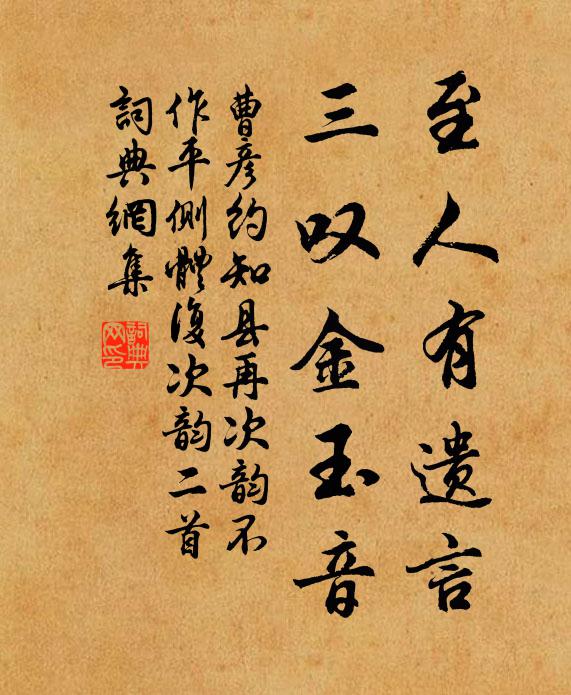 至人有遗言
三叹金玉音
曹彦约知县再次韵不
作平侧体复次韵二首
词典网集
词典
网印